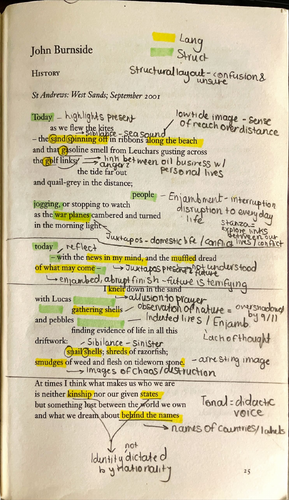 Lang
John Burnside
Struct
HISTORY
Structural layout - confusion & unsure
St Andrews: West Sands; September 2001
Today → highlights present
lowtide image - sense of reach over distance
as we flew the kites
→ Sibilance - sea sound
– the sand spinning off in ribbons along the beach
and that gasoline smell from Leuchars gusting across
the golf links;
→ link between oil business w/ personal lives
anger?
the tide far out
and quail-grey in the distance;
people
→ Enjambment - interruption disruption to everyday life
jogging, or stopping to watch
as the war planes cambered and turned
stanza = explore links between our lives / conflict
in the morning light –
→ Juxtapos - domestic life / conflict
today
→ reflect
– with the news in my mind, and the muffled dread
→ not understood
of what may come –
→ Juxtapos present + future
→ enjambed, abrupt finish - future is terrifying
I knelt down in the sand
with Lucas
→ allusion to prayer
gathering shells
→ observation of nature = overshadowed by 9/11
and pebbles
→ Indented lines / Enjamb.
finding evidence of life in all this
Lack of thought
driftwork:
→ Sibilance - Sinister
snail shells; shreds of razorfish;
smudges of weed and flesh on tideworn stone.
→ arresting image
→ images of chaos/destruction
At times I think what makes us who we are
is neither kinship nor our given states
but something lost between the world we own
Tonal = didactic voice
and what we dream about behind the names
→ names of countries/labels
Identity not dictated by Nationality
25